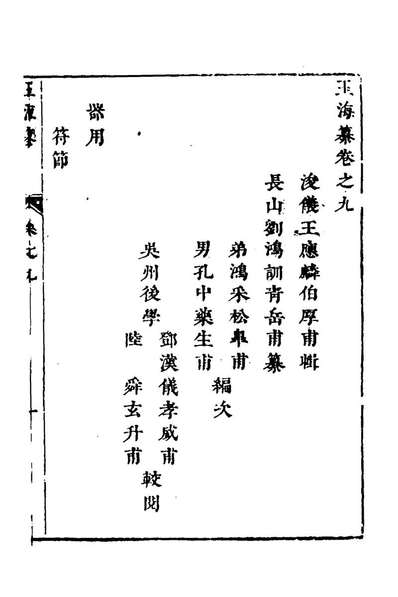 玉海纂卷之九
浚儀王應麟伯厚甫輯
長山劉鴻訓青岳甫纂
弟鴻采松皐甫
男孔中藥生甫
編次
吳州後學
鄧漢儀孝威甫
陸舜玄升甫
較閱
器用
符節
玉海纂
卷之九